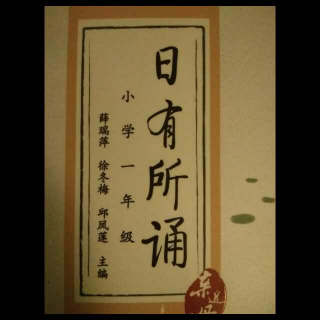 日有所诵
小学一年级
薛瑞萍 徐冬梅 邱凤莲 主编
亲近